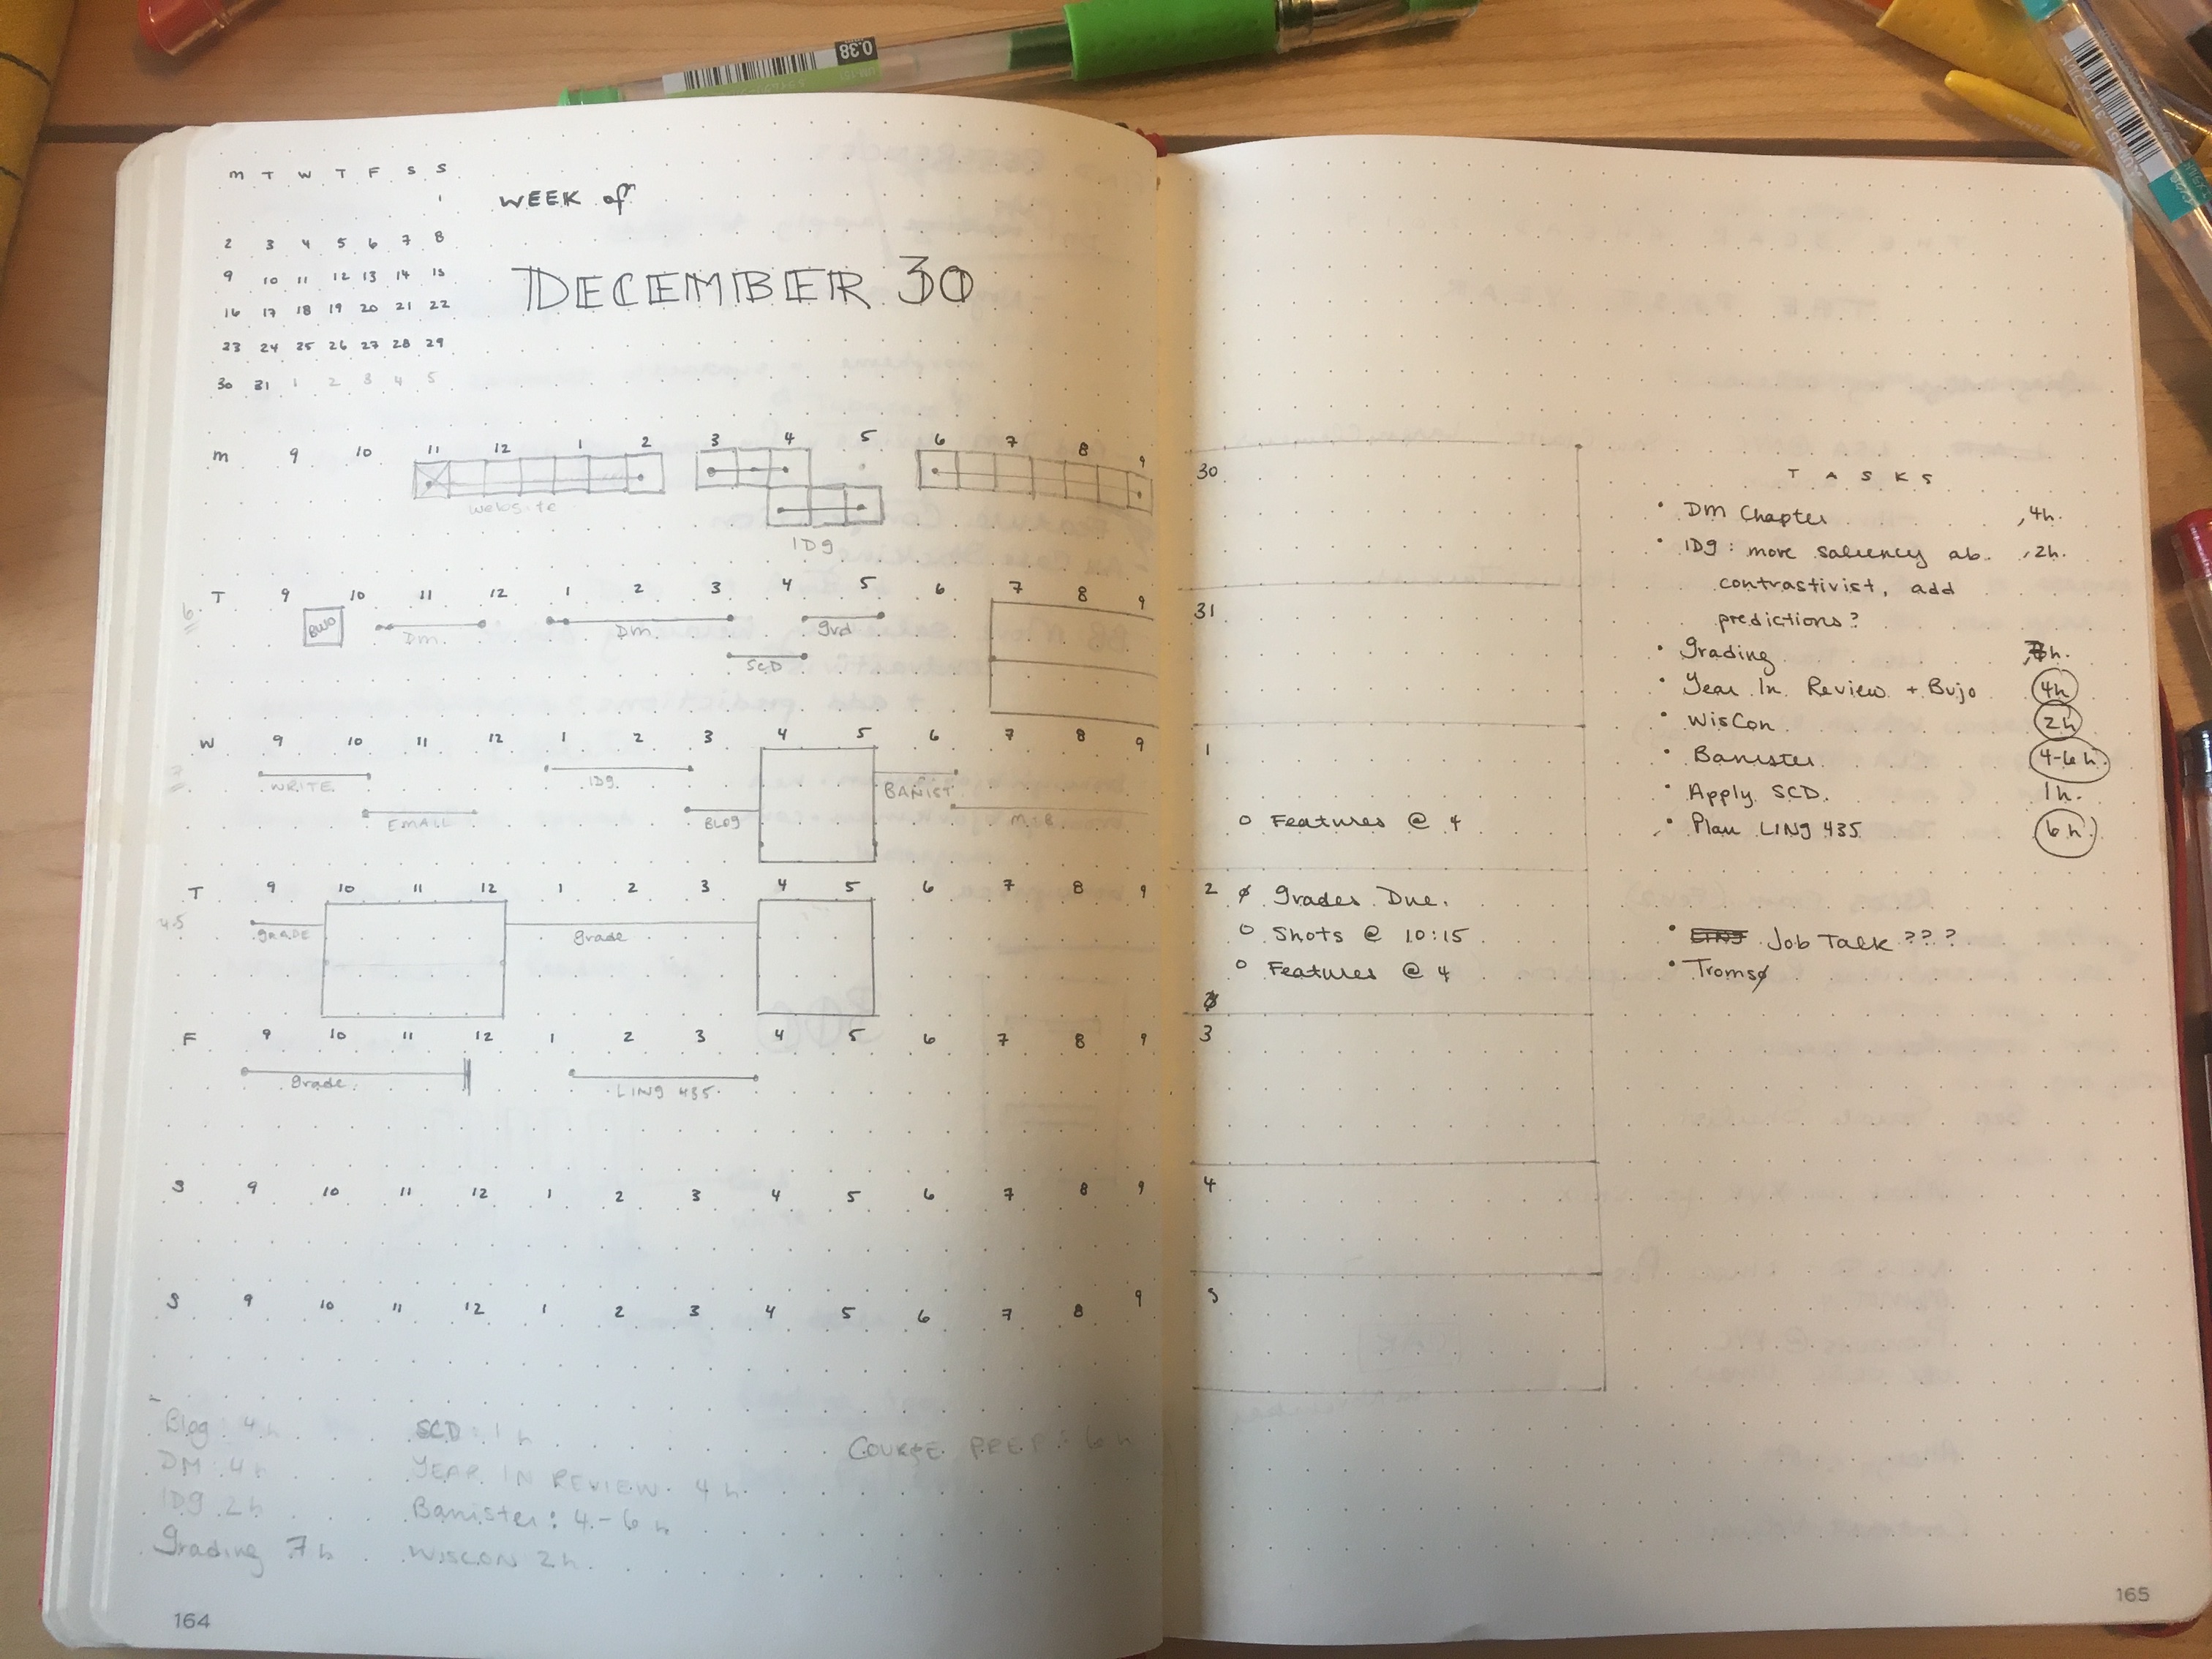 0.38
UM-151
M T W T F S S
1
2 3 4 5 6 7 8
9 10 11 12 13 14 15
16 17 18 19 20 21 22
23 24 25 26 27 28 29
30 31 1 2 3 4 5
WEEK of
DECEMBER 30
M 9 10 11 12 1 2 3 4 5 6 7 8 9
website
IDg
T 9 10 11 12 1 2 3 4 5 6 7 8 9
6
BUJO
Dm
Dm
grd
SCD
W 9 10 11 12 1 2 3 4 5 6 7 8 9
3
WRITE
IDg
BANIST
EMAIL
BLOg
T 9 10 11 12 1 2 3 4 5 6 7 8 9
4.5
gRADE
grade
F 9 10 11 12 1 2 3 4 5 6 7 8 9
grade
LINg 435
S 9 10 11 12 1 2 3 4 5 6 7 8 9
S 9 10 11 12 1 2 3 4 5 6 7 8 9
Blog: 4h
DM 4h
IDg 2h
grading 7h
SCD: 1h
YEAR IN REVIEW 4h
Banister: 4-6h
WISCON 2h
COURSE PREP: 6h
164
30
31
1
o Features @ 4
2 ø grades Due.
o Shots @ 10:15
o Features @ 4
3
4
5
TASKS
• DM Chapter 4h.
• IDg: more saliency ab. 2h.
contrastivist, add
predictions?
• grading h.
• Year In Review + Bujo 4h
• WisCon 2h
• Banister 4-6h.
• Apply SCD. 1h.
• Plan LINg 435 6h
• LINg Job Talk ???
• Tromsø
165